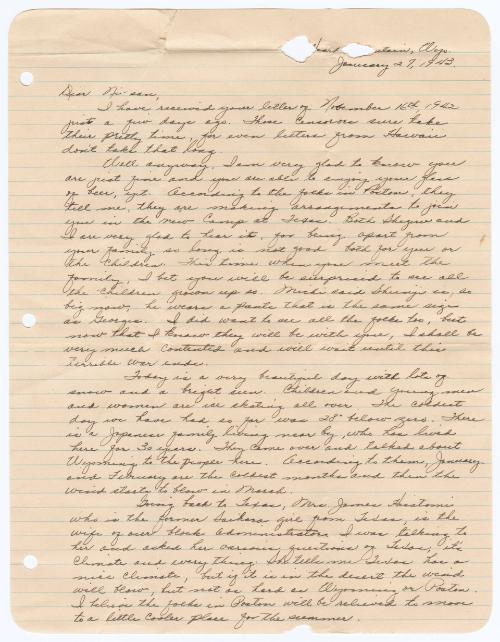 Heart Mountain, Wyo.
January 27, 1943.
Dear Ni-san,
I have received your letter of November 16th, 1942
just a few days ago. Those Censorors sure take
their pretty time, for even letters from Hawaii
don't take that long
Well anyway, I am very glad to know you
are just fine and you are able to enjoy your glass
of beer, yet. According to the folks in Poston, they
tell me, they are making arrangements to join
you in the new Camp at Texas. Both Shegeru and
I are very glad to hear it, for being apart from
your family so long is not good both for you or
the Children. This time when you meet the
family, I bet you will be surprised to see all
the Children grown up so. Michi said Shinji is, so
big now, he wears a pants that is the same size
as Georges. I did want to see all the folks too, but
now that I know they will be with you, I shall be
very much contented and will wait until this
terrible war ends.
Today is a very beautiful day with lots of
snow and a bright sun. Children and young men
and women are ice skating all over. The coldest
day we have had so far was 28° below zero. There
is a Japanese family living near by, who has lived
here for 30 years. They came over and talked about
Wyoming to the people here. According to them, January
and February are the coldest months and then the
wind starts to blow in March.
Going back to Texas, Mrs. James
who is the former girl from Texas, is the
wife of our block administrator. I was talking to
her and asked her various questions of Texas, it's
Climate and everything. She tells me Texas has a
nice Climate, but if it is in the desert the wind
will blow, but not as hard as Wyoming or Poston.
I believe the folks in Poston will be relieved to move
to a little cooler place for the summer.